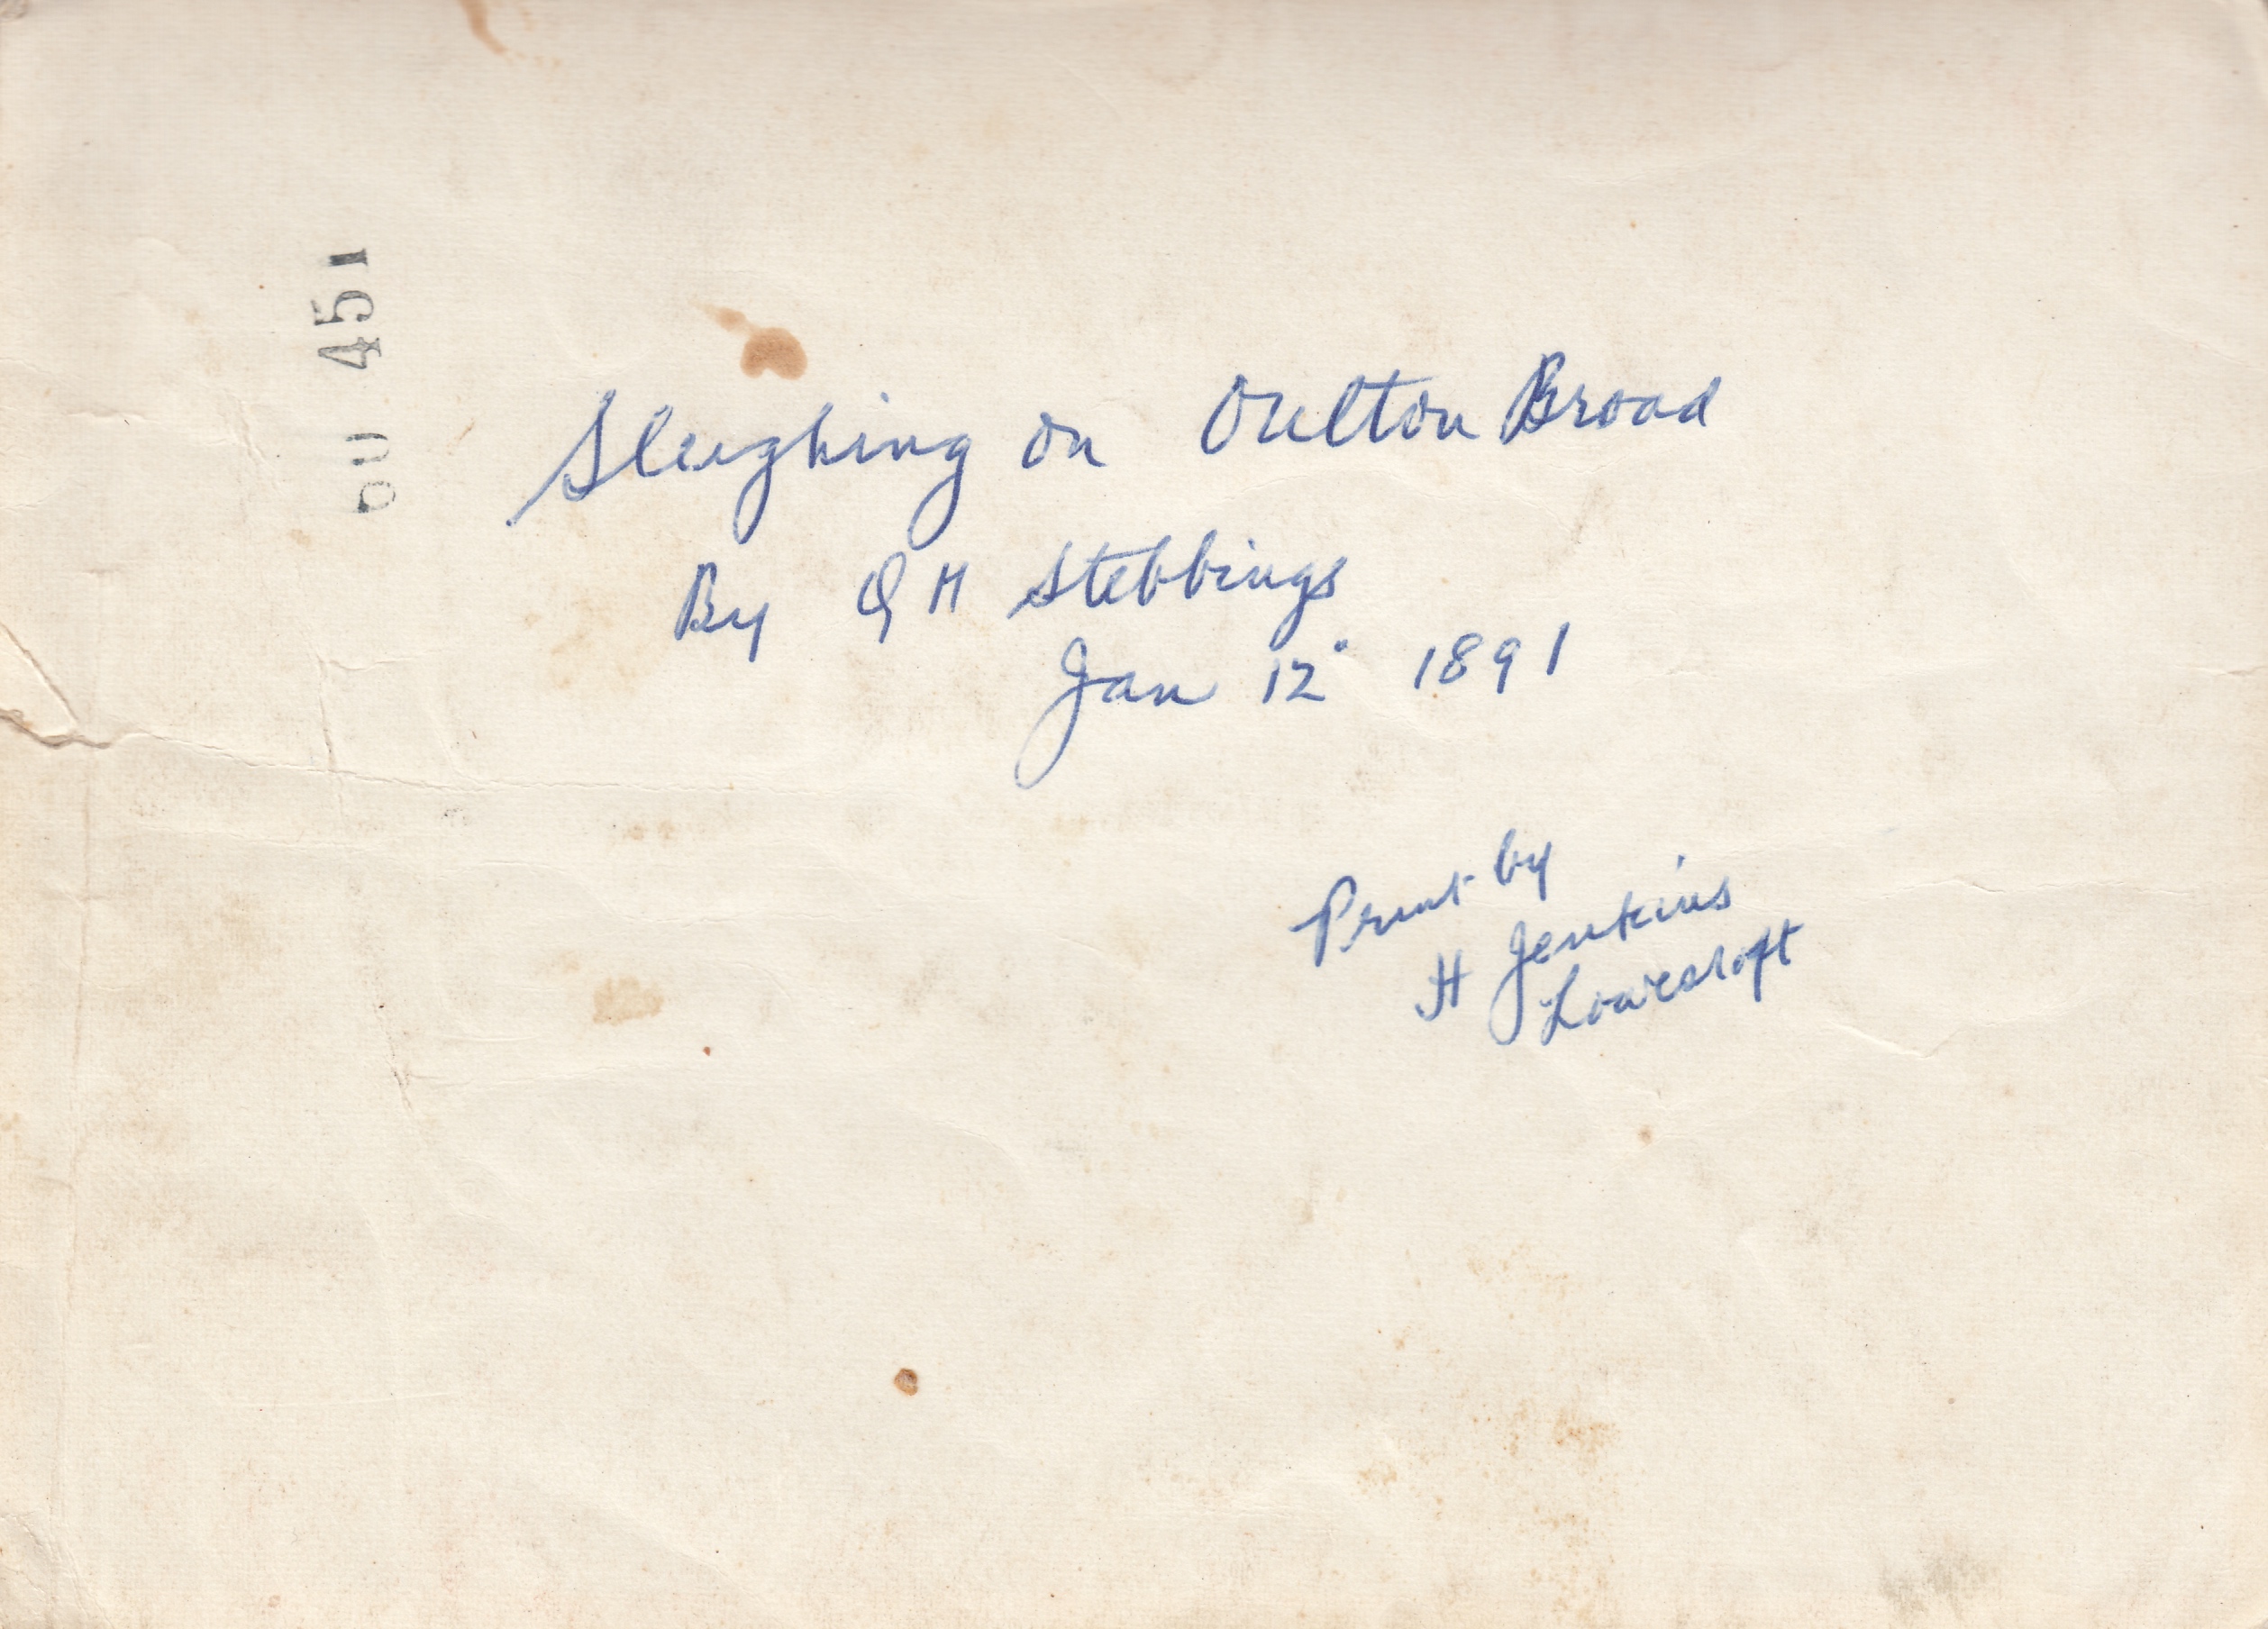 Sleighing on Oulton Broad
By G H Stebbings
Jan 12 1891
Print by
H Jenkins
Lowestoft
451